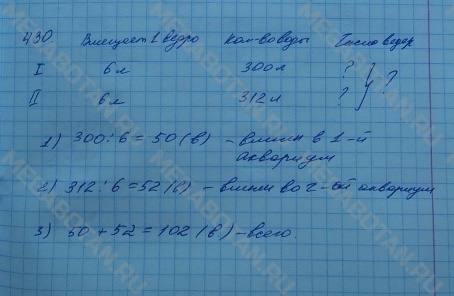 430 Вмещает 1 ведро Кол-во воды Число ведер
I 6 л 300 л ?
II 6 л 312 л ? } ?
1) 300 : 6 = 50 (в) – влили в 1-й
аквариум
2) 312 : 6 = 52 (в) – влили во 2-ой аквариум
3) 50 + 52 = 102 (в) – всего.
MEGABOTAN.RU